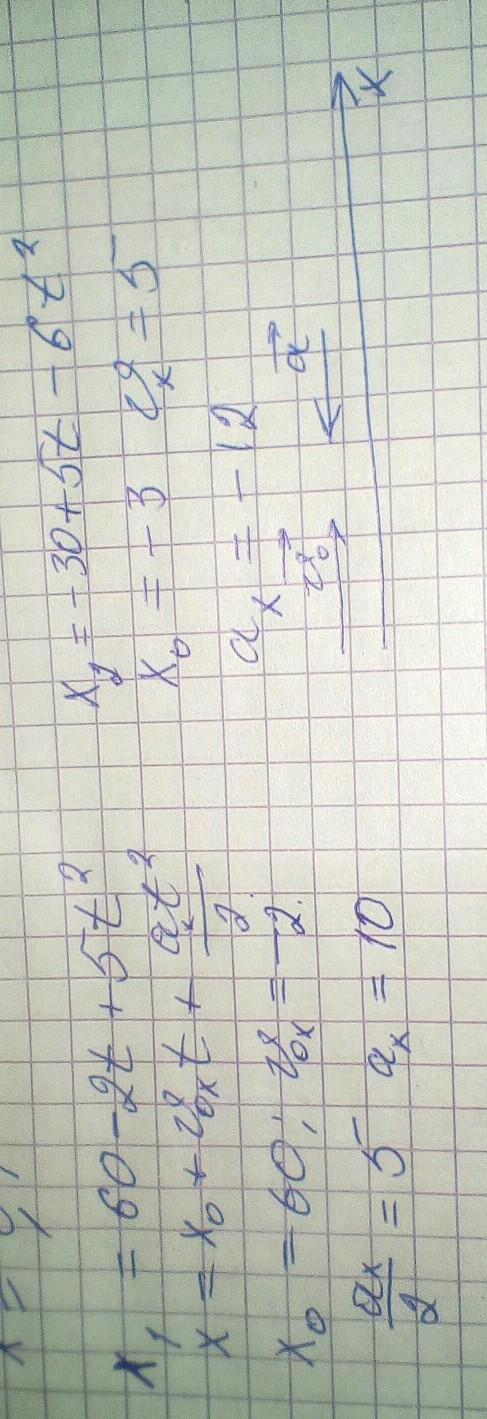 x₁ = 60 - 2t + 5t²
x = x₀ + v₀ₓt + aₓt²/2
x₀ = 60; v₀ₓ = -2.
aₓ/2 = 5 aₓ = 10
x₂ = -30 + 5t - 6t²
x₀ = -3 vₓ = 5
aₓ = -12
v⃗₀ a⃗
x